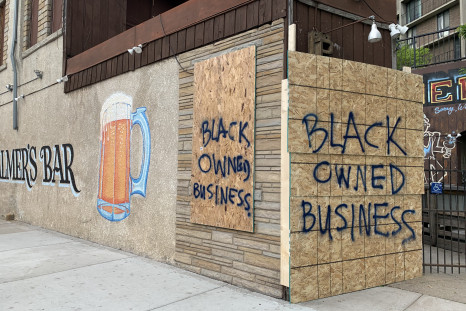 LMER'S BAR
BLACK
OWNED
BUSINESS
BLACK
OWNED
BUSINESS